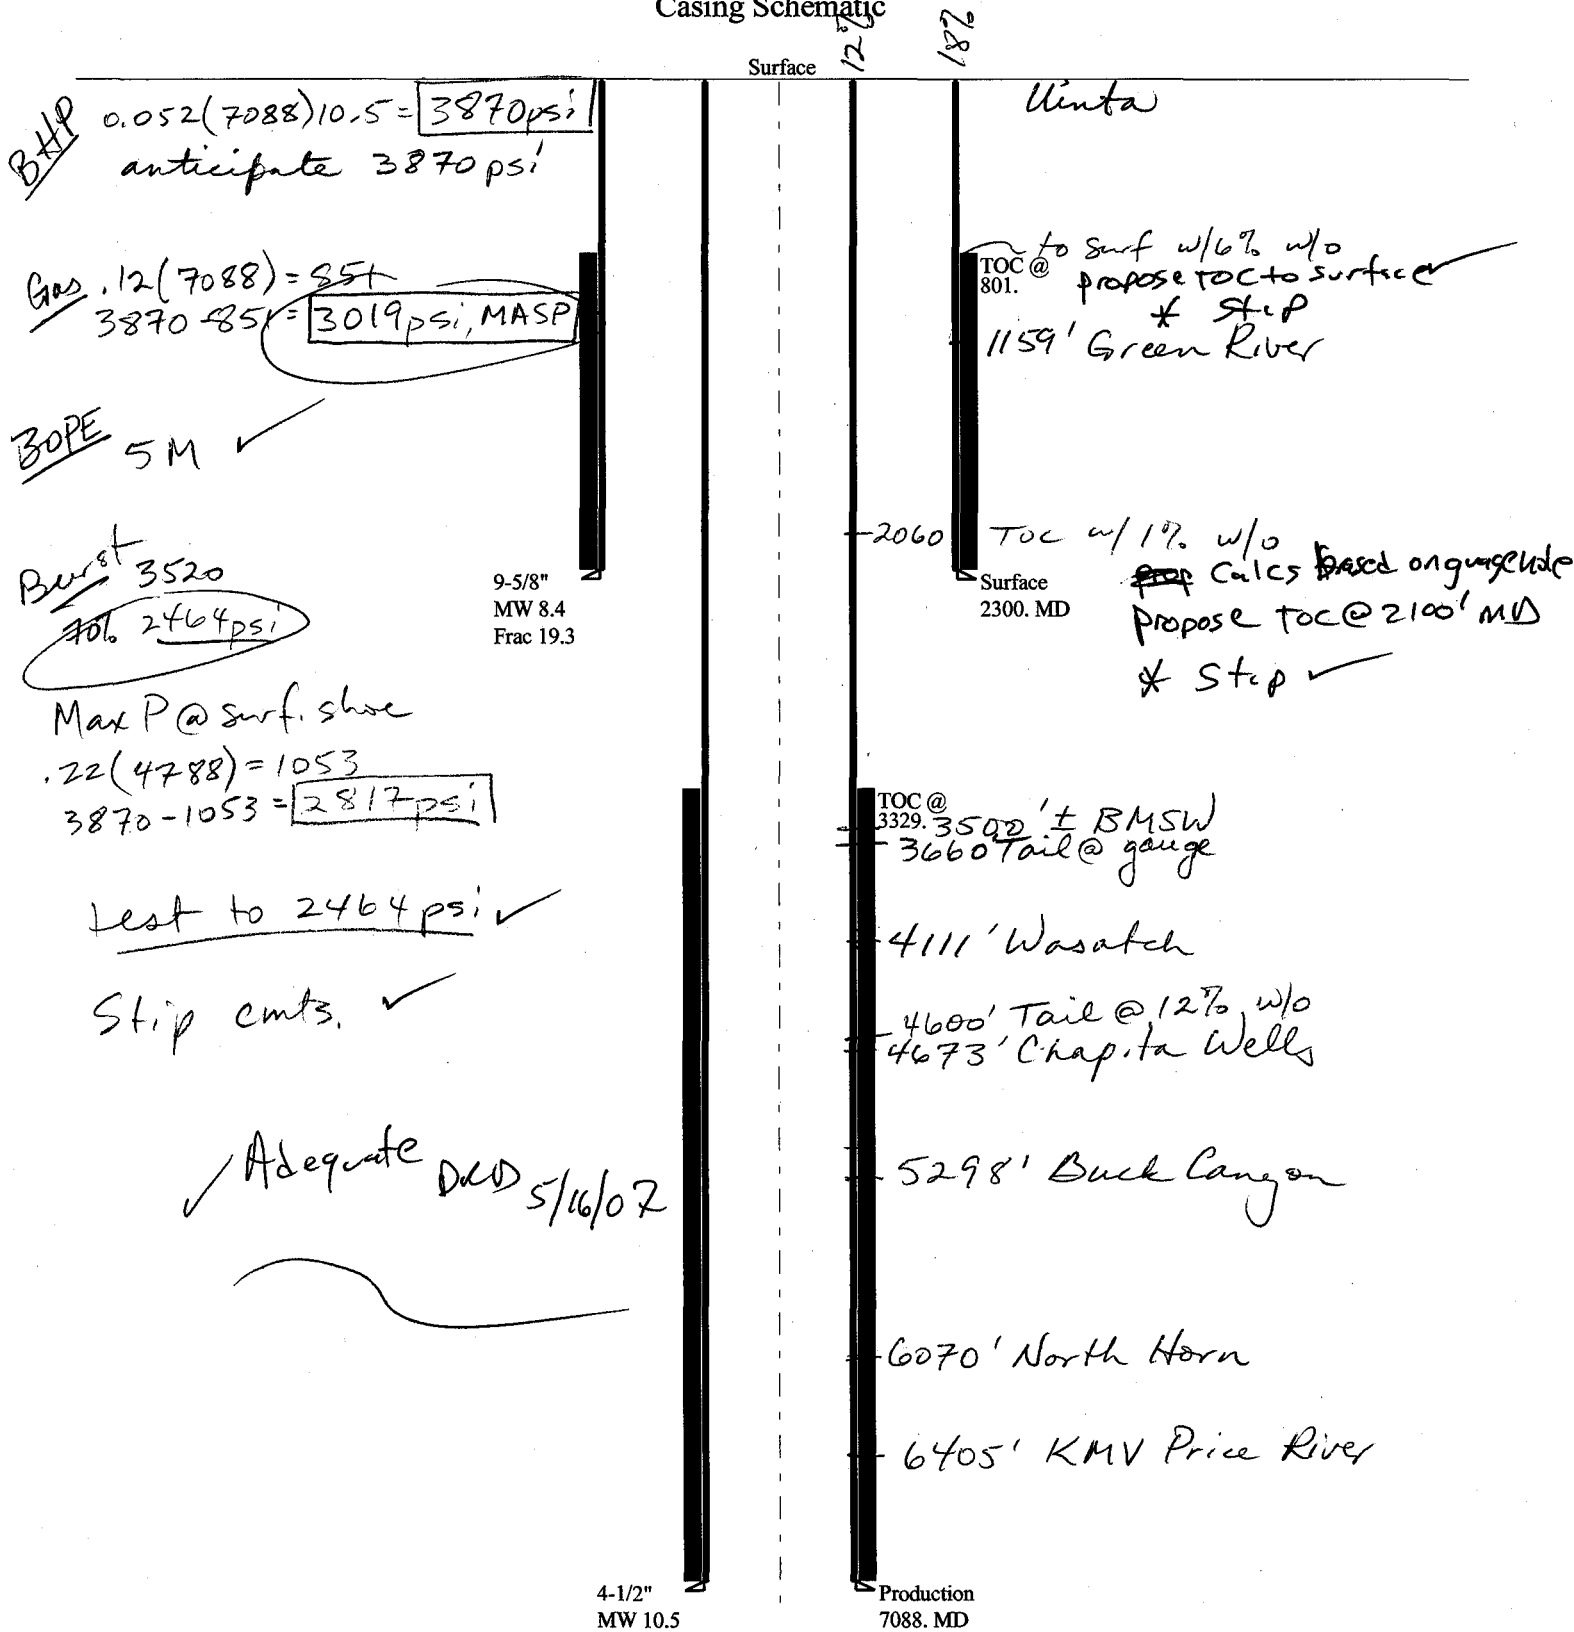 Casing Schematic
12%
18%
Surface
Uinta
BHP 0.052(7088)10.5= 3870psi
anticipate 3870 psi
Gas .12(7088)=851
3870-851= 3019psi, MASP
BOPE 5M ✓
Burst 3520
70% 2464psi
Max P @ surf. shoe
.22(4788)=1053
3870-1053= 2817psi
test to 2464 psi ✓
Stip cmts. ✓
✓ Adequate DKD 5/16/07
9-5/8"
MW 8.4
Frac 19.3
4-1/2"
MW 10.5
to surf w/6% w/o
TOC @
801.
propose TOC to surface ✓
* Stip
1159' Green River
2060 TOC w/ 1% w/o
Calcs based on guage hole
propose TOC @ 2100' MD
* Stip ✓
Surface
2300. MD
TOC @
3329.
3500' ± BMSW
3660 Tail @ gauge
4111' Wasatch
4600' Tail @ 12% w/o
4673' Chapita Wells
5298' Buck Canyon
6070' North Horn
6405' KMV Price River
Production
7088. MD